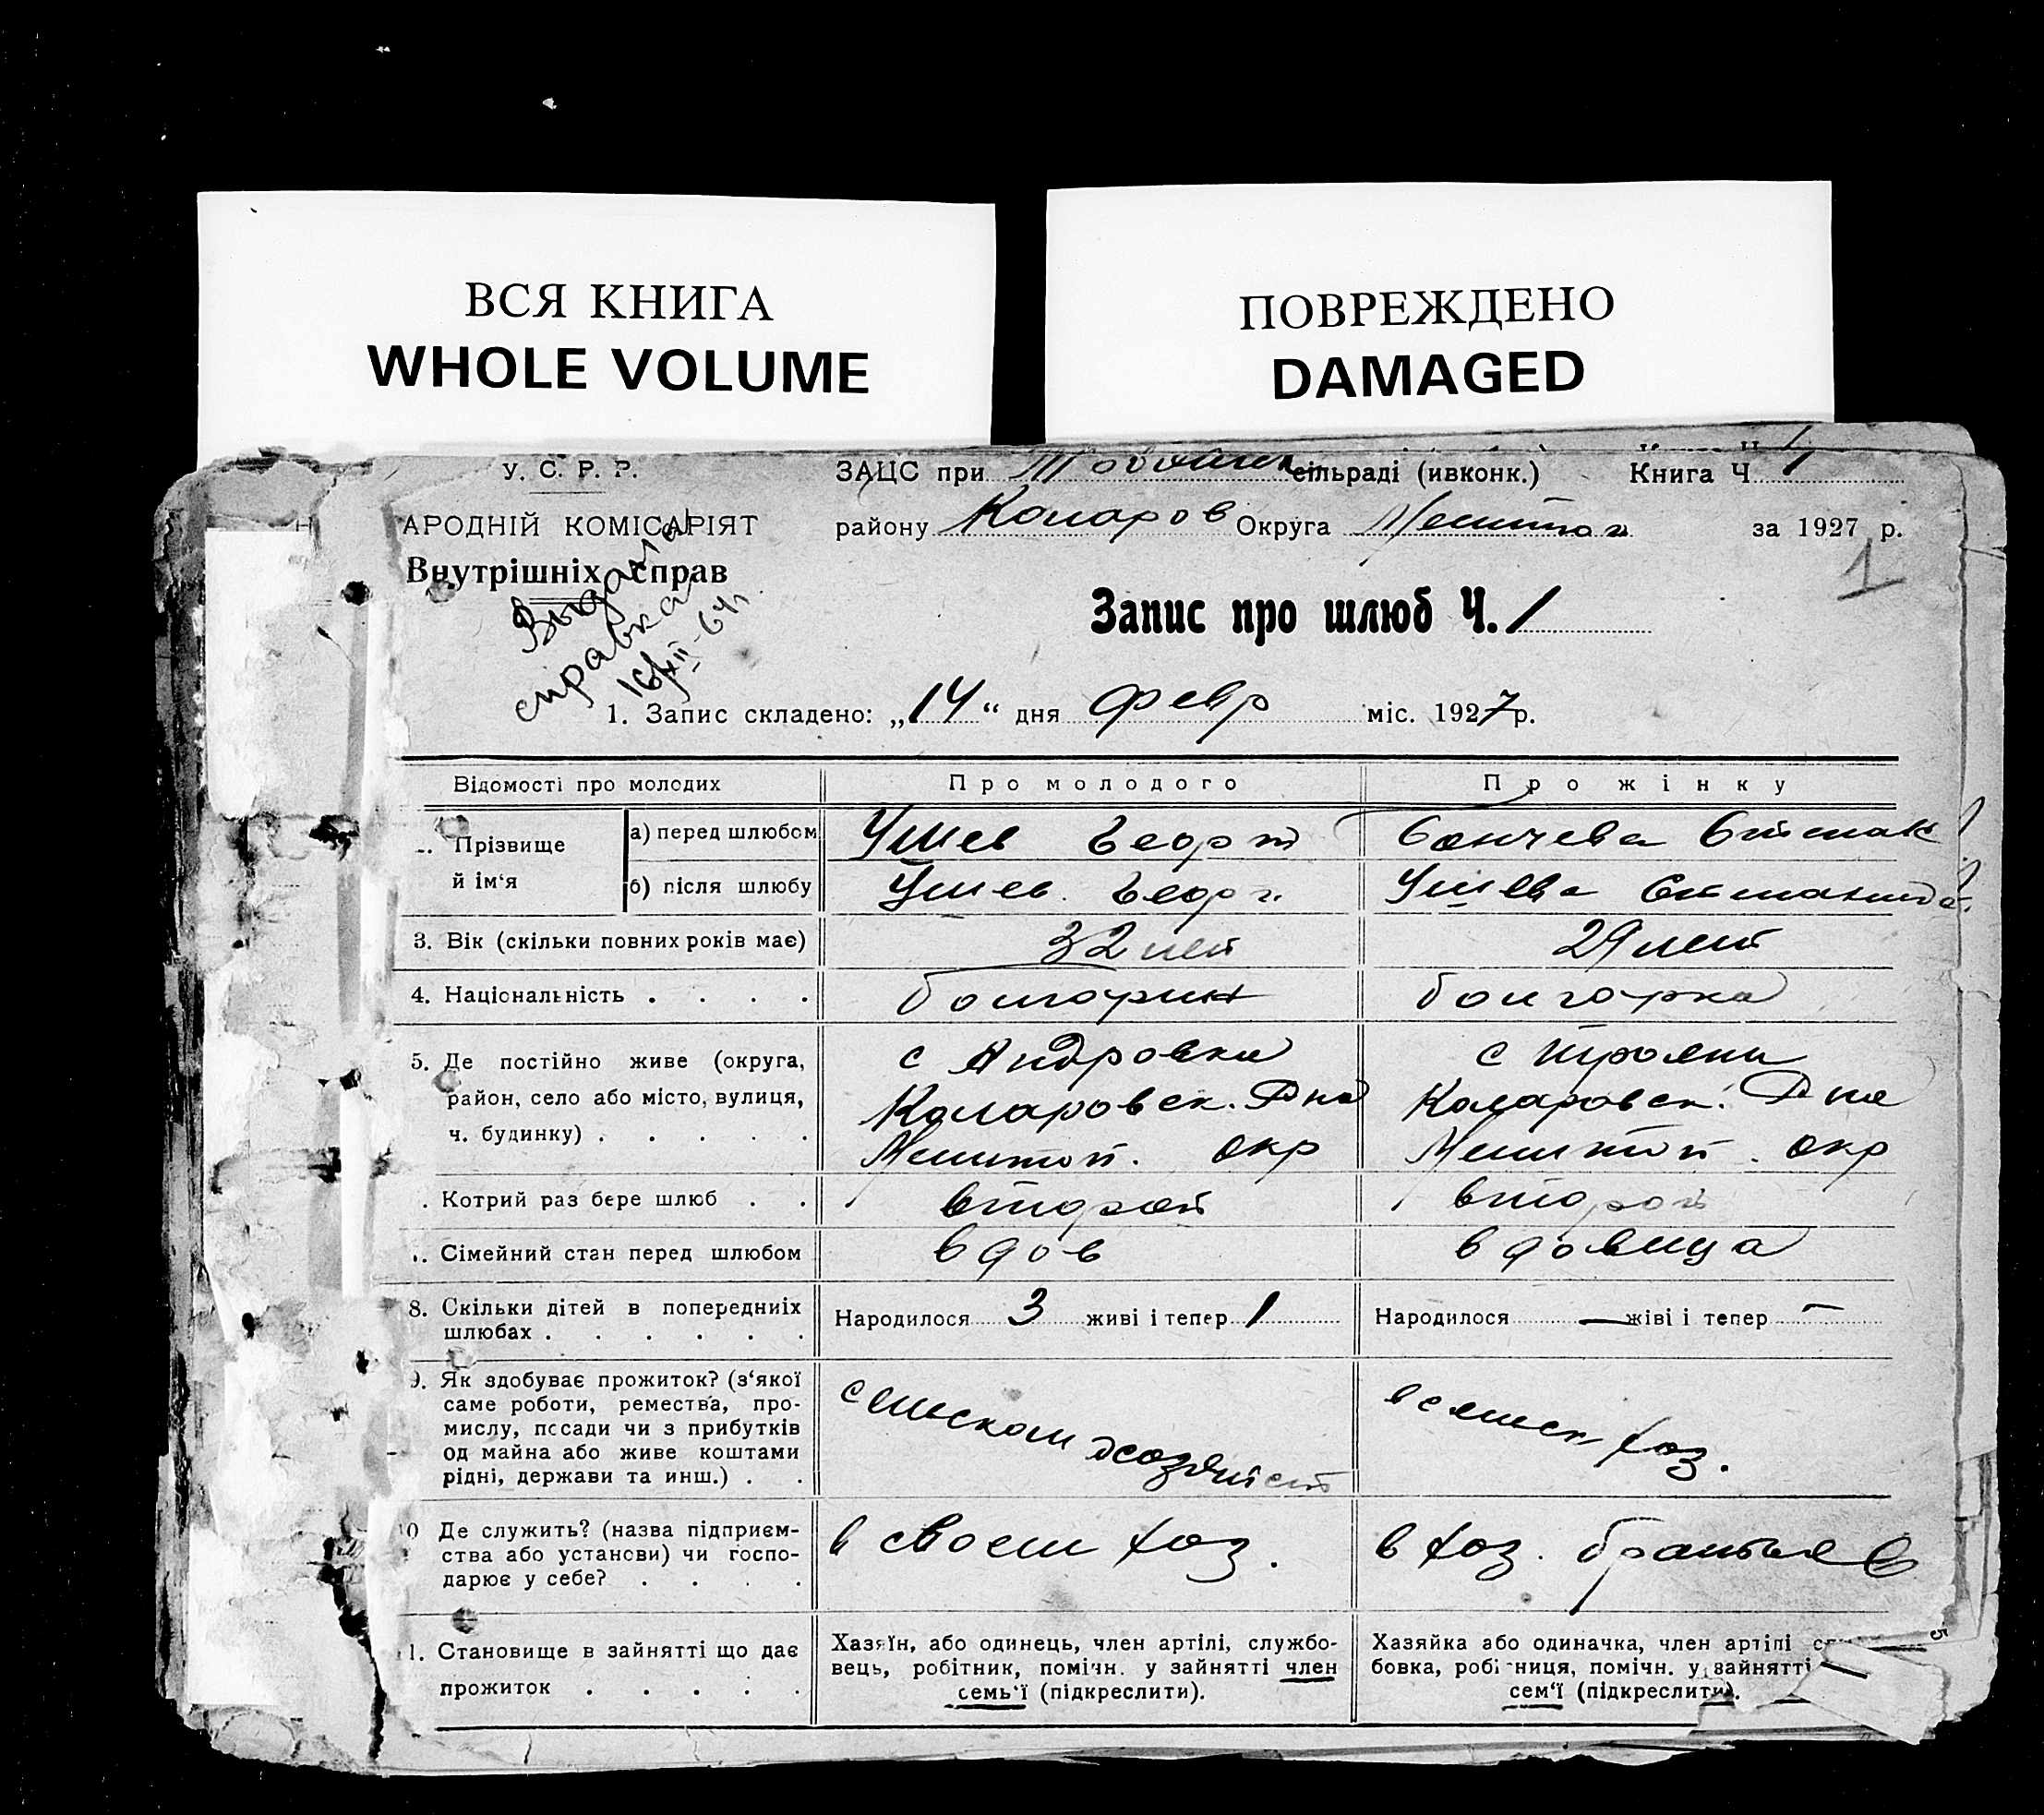 ВСЯ КНИГА
WHOLE VOLUME
ПОВРЕЖДЕНО
DAMAGED
У. С. Р. Р.
ЗАЦС при сільраді (ивконк.) Книга Ч 1
АРОДНІЙ КОМІСАРІЯТ
району Коларов Округа Мелитоп за 1927 р.
Внутрішніх справ
1
Выдана
справка
16/XII-64г
Запис про шлюб Ч. 1
1. Запис складено: „14“ дня февр міс. 1927 р.
Відомості про молодих Про молодого Про жінку
Прізвище й ім‘я
а) перед шлюбом Ушев Георг
б) після шлюбу Ушев Георг. Ушева
3. Вік (скільки повних років має) 32 лет 29 лет
4. Національність . . . . болгарин болгарка
5. Де постійно живе (округа, район, село або місто, вулиця, ч. будинку) . . . . .
с Андровка
Коларовск. Рна
Мелитоп. окр
с Трояни
Коларовск. Рна
Мелитоп. окр
. Котрий раз бере шлюб . . второй второй
. Сімейний стан перед шлюбом вдов вдовица
8. Скільки дітей в попередниіх шлюбах . . . . . .
Народилося 3 живі і тепер 1
Народилося — жіві і тепер —
9. Як здобуває прожиток? (з‘якої
саме роботи, ремества, про-
мислу, посади чи з прибутків
од майна або живе коштами
рідні, держави та инш.) . .
сельским хозяйст
в сельск хоз.
10 Де служить? (назва підприєм-
ства або установи) чи госпо-
дарює у себе? . . . .
в своем хоз.
в хоз. братьев
1. Становище в зайнятті що дає
прожиток . . . . .
Хазяїн, або одинець, член артілі, службо-
вець, робітник, помічн. у зайнятті член
семь‘ї (підкреслити).
Хазяйка або одиначка, член артілі
бовка, робітниця, помічн. у зайнятті
сем‘ї (підкреслити).